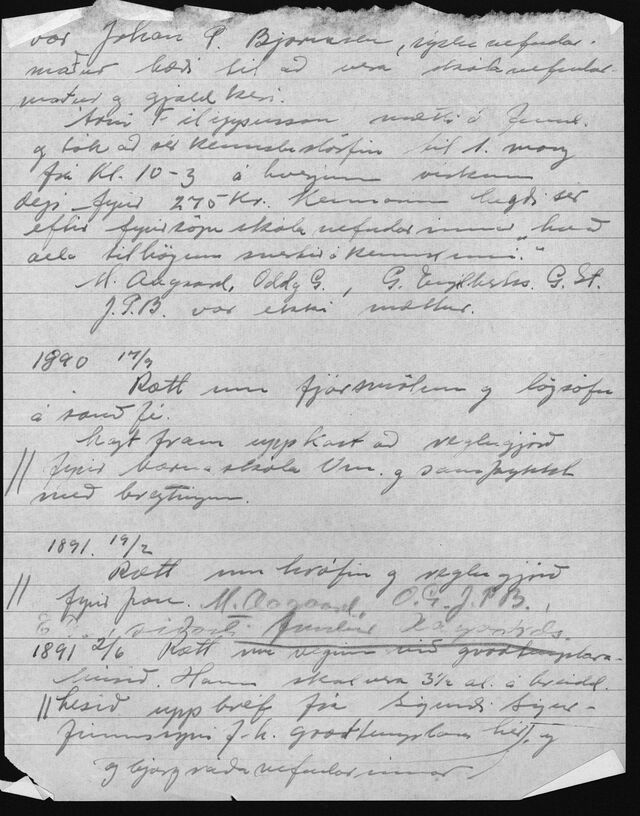 var Johan P. Bjarnasen, sýslunefndar-
maður bæði til að vera skólanefndar-
maður og gjaldkeri.
Árni Filippusson mætti á fund.
og tók að sér kennslustörfin til 1. marz
frá Kl. 10-3 á hverjum virkum
degi fyrir 275 Kr. Kennarinn hegði sér
eftir fyrirsögn skólanefndarinnar „hvað
alla tilhögun snertir á kennslunni."
M. Aagaard, Oddg G., G. St.
J.P.B. var ekki mættur.
1890 17/9
Rætt um fjársmölun og lögsöfn
á sauðfé.
Lagt fram uppkast að reglugjörð
// fyrir barnaskóla Vm. og samþykkt
með breytingum.
1891. 19/2
Rætt um hrófin og reglugjörð
// fyrir þau. M. Aagaard, O.G. J.P.B.,
1891 2/6 Rætt um veginn við goodtemplara-
húsið. Hann skal vera 3 1/2 al. á breidd.
// Lesið upp bréf frá Sigurði Sigur-
finnssyni f.h. goodtemplara hér, og
og bjargráðanefndarinnar